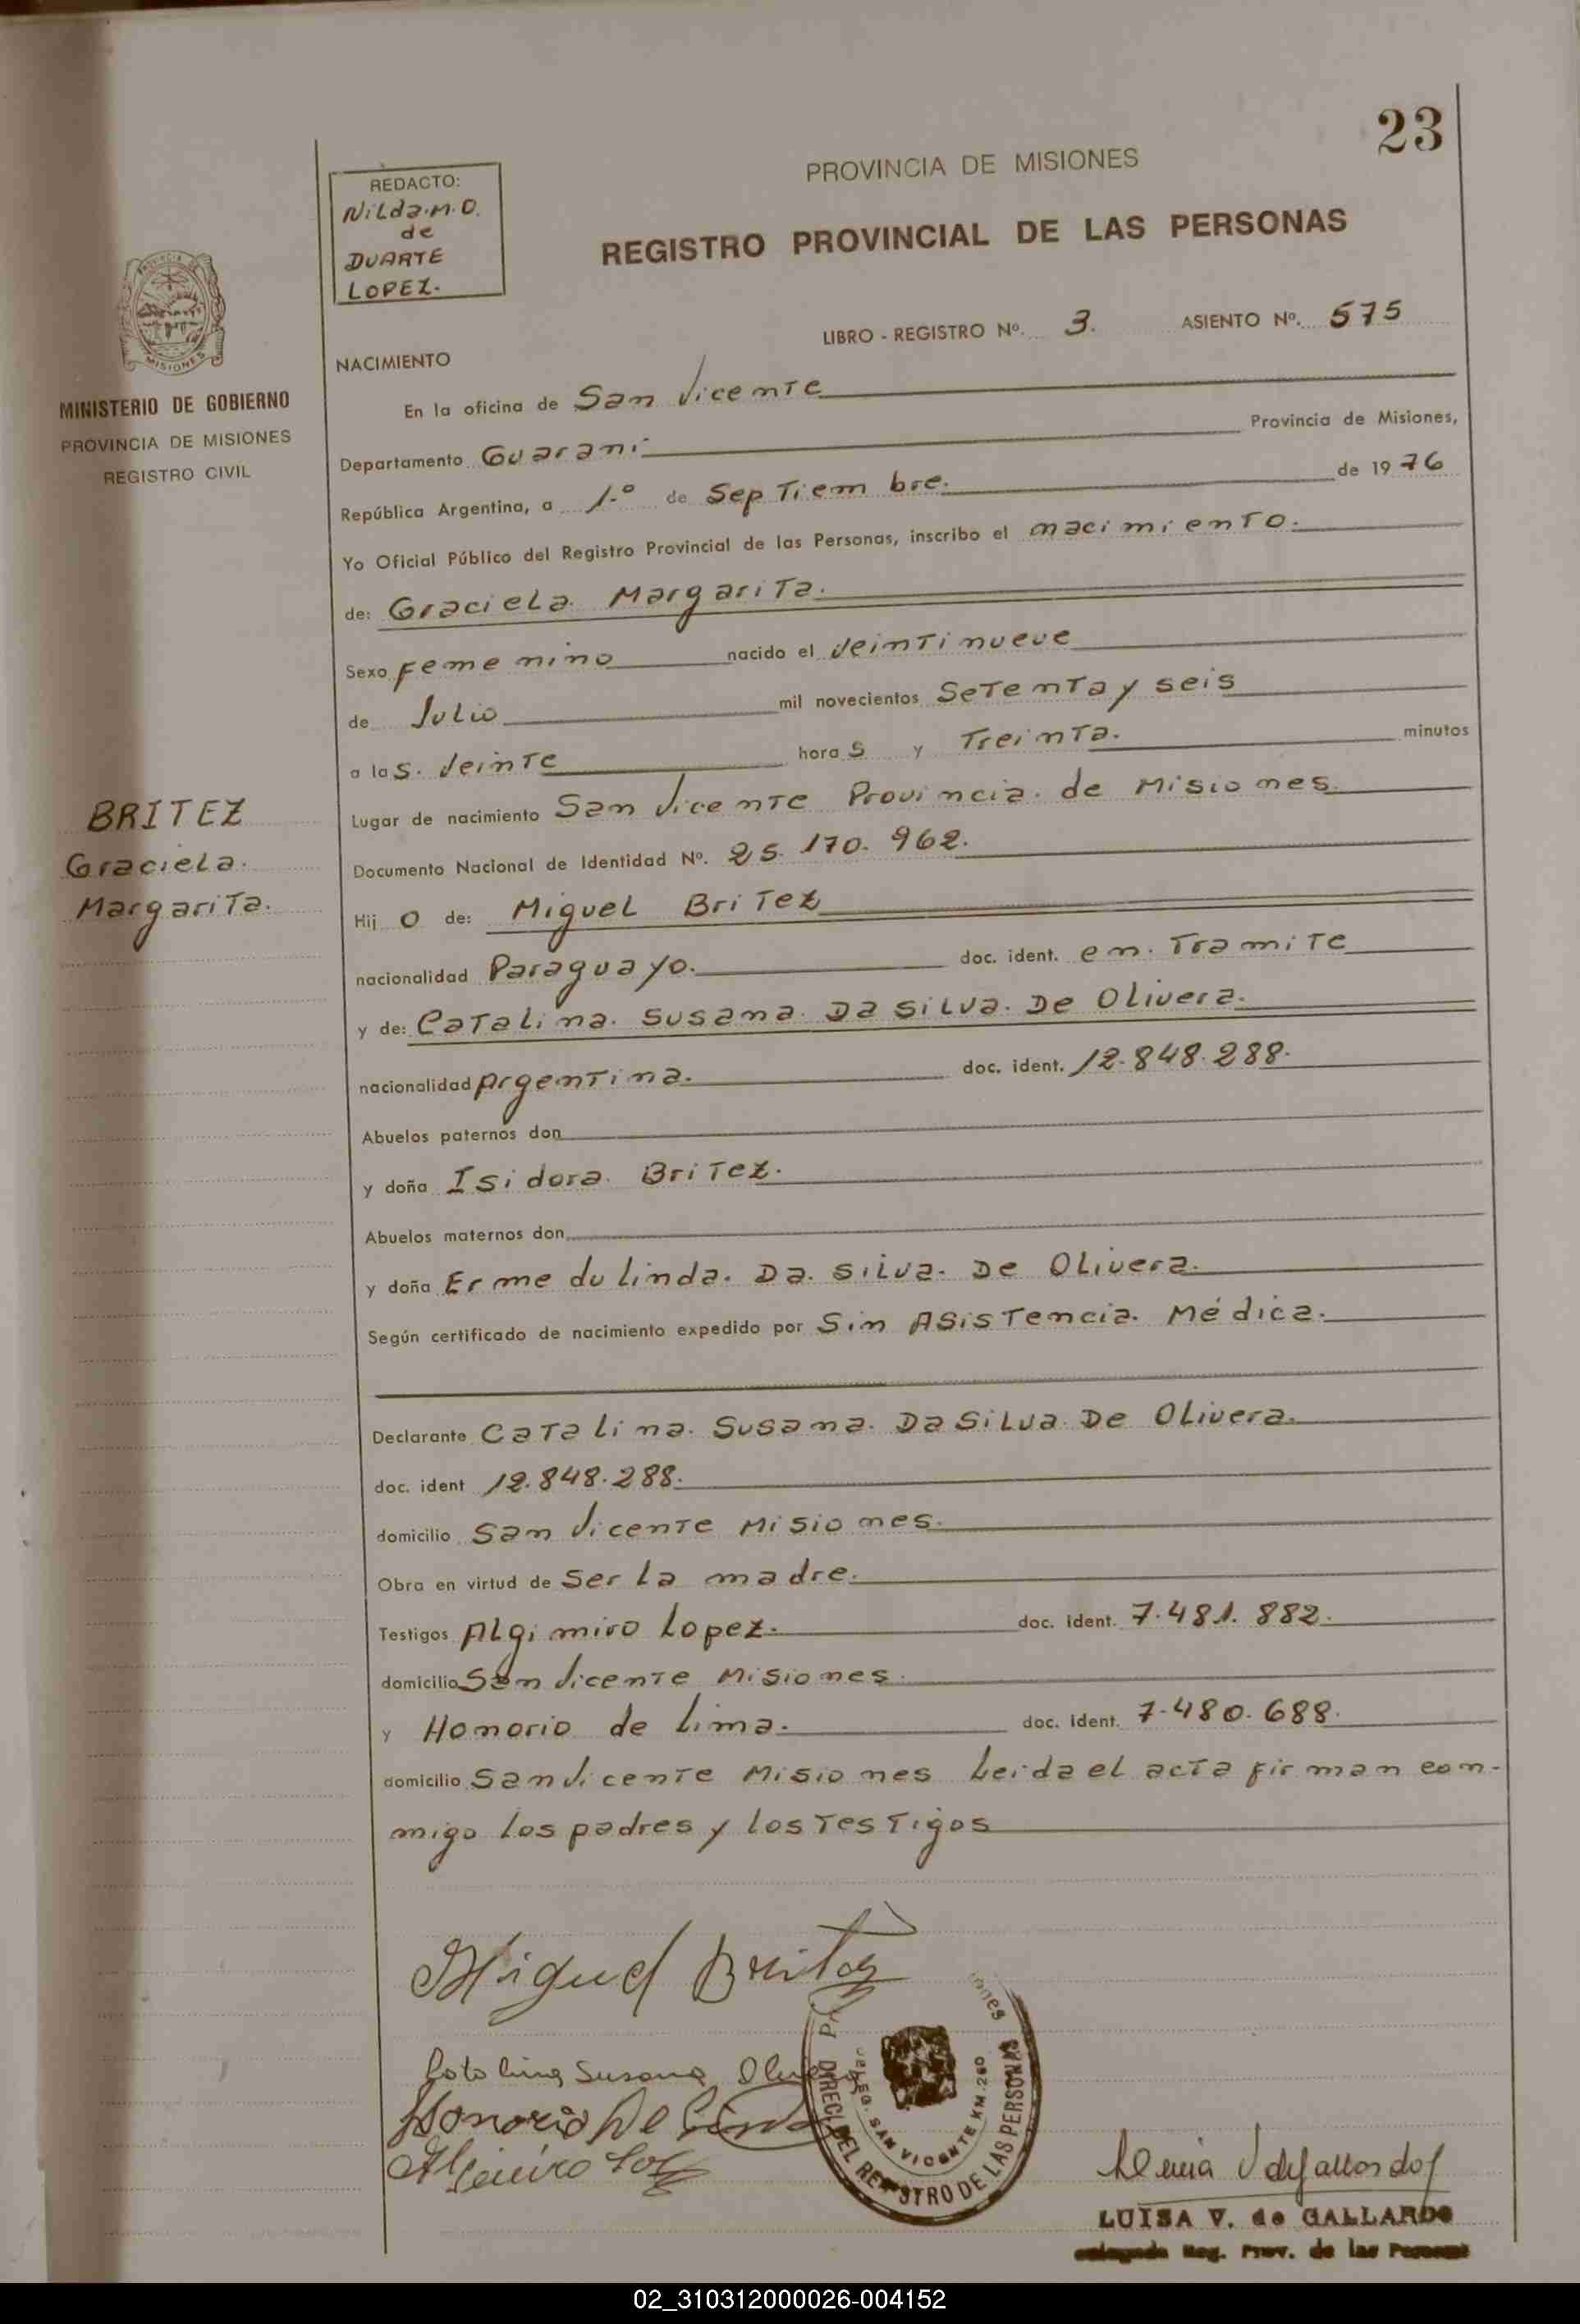 23
REDACTO:
Nilda.M.O.
de
DUARTE
LOPEZ.
PROVINCIA DE MISIONES
REGISTRO PROVINCIAL DE LAS PERSONAS
PROVINCIA DE
MISIONES
MINISTERIO DE GOBIERNO
PROVINCIA DE MISIONES
REGISTRO CIVIL
LIBRO - REGISTRO Nº. 3. ASIENTO Nº. 575
NACIMIENTO
En la oficina de San Vicente
Departamento Guaraní Provincia de Misiones,
República Argentina, a 1.º de Septiembre. de 1976
Yo Oficial Público del Registro Provincial de las Personas, inscribo el nacimiento.
de: Graciela Margarita.
Sexo femenino nacido el Veintinueve
de Julio mil novecientos Setenta y seis
a las. Veinte horas y Treinta. minutos
Lugar de nacimiento San Vicente Provincia de Misiones.
Documento Nacional de Identidad Nº. 25.170.962.
Hijo de: Miguel Britez
nacionalidad Paraguayo. doc. ident. en Tramite
y de: Catalina Susana Da Silva De Olivera.
nacionalidad Argentina. doc. ident. 12.848.288.
Abuelos paternos don
y doña Isidora Britez.
Abuelos maternos don
y doña Ermedulinda. Da. Silva. De Olivera.
Según certificado de nacimiento expedido por Sin Asistencia Médica.
Declarante Catalina. Susana. Da Silva De Olivera.
doc. ident 12.848.288.
domicilio San Vicente Misiones.
Obra en virtud de Ser la madre.
Testigos Algimiro Lopez. doc. ident. 7.481.882.
domicilio San Vicente Misiones.
y Honorio de Lima. doc. ident. 7.480.688.
domicilio San Vicente Misiones Leida el acta firman con-
migo los padres y los Testigos
BRITEZ
Graciela.
Margarita.
Miguel Britez
Catalina Susana Olivera
Honorio De Lima
DEL REGISTRO DE LAS PERSONAS
SAN VICENTE KM.260
LUISA V. de GALLARDO
Reg. Prov. de las Personas
02_310312000026-004152